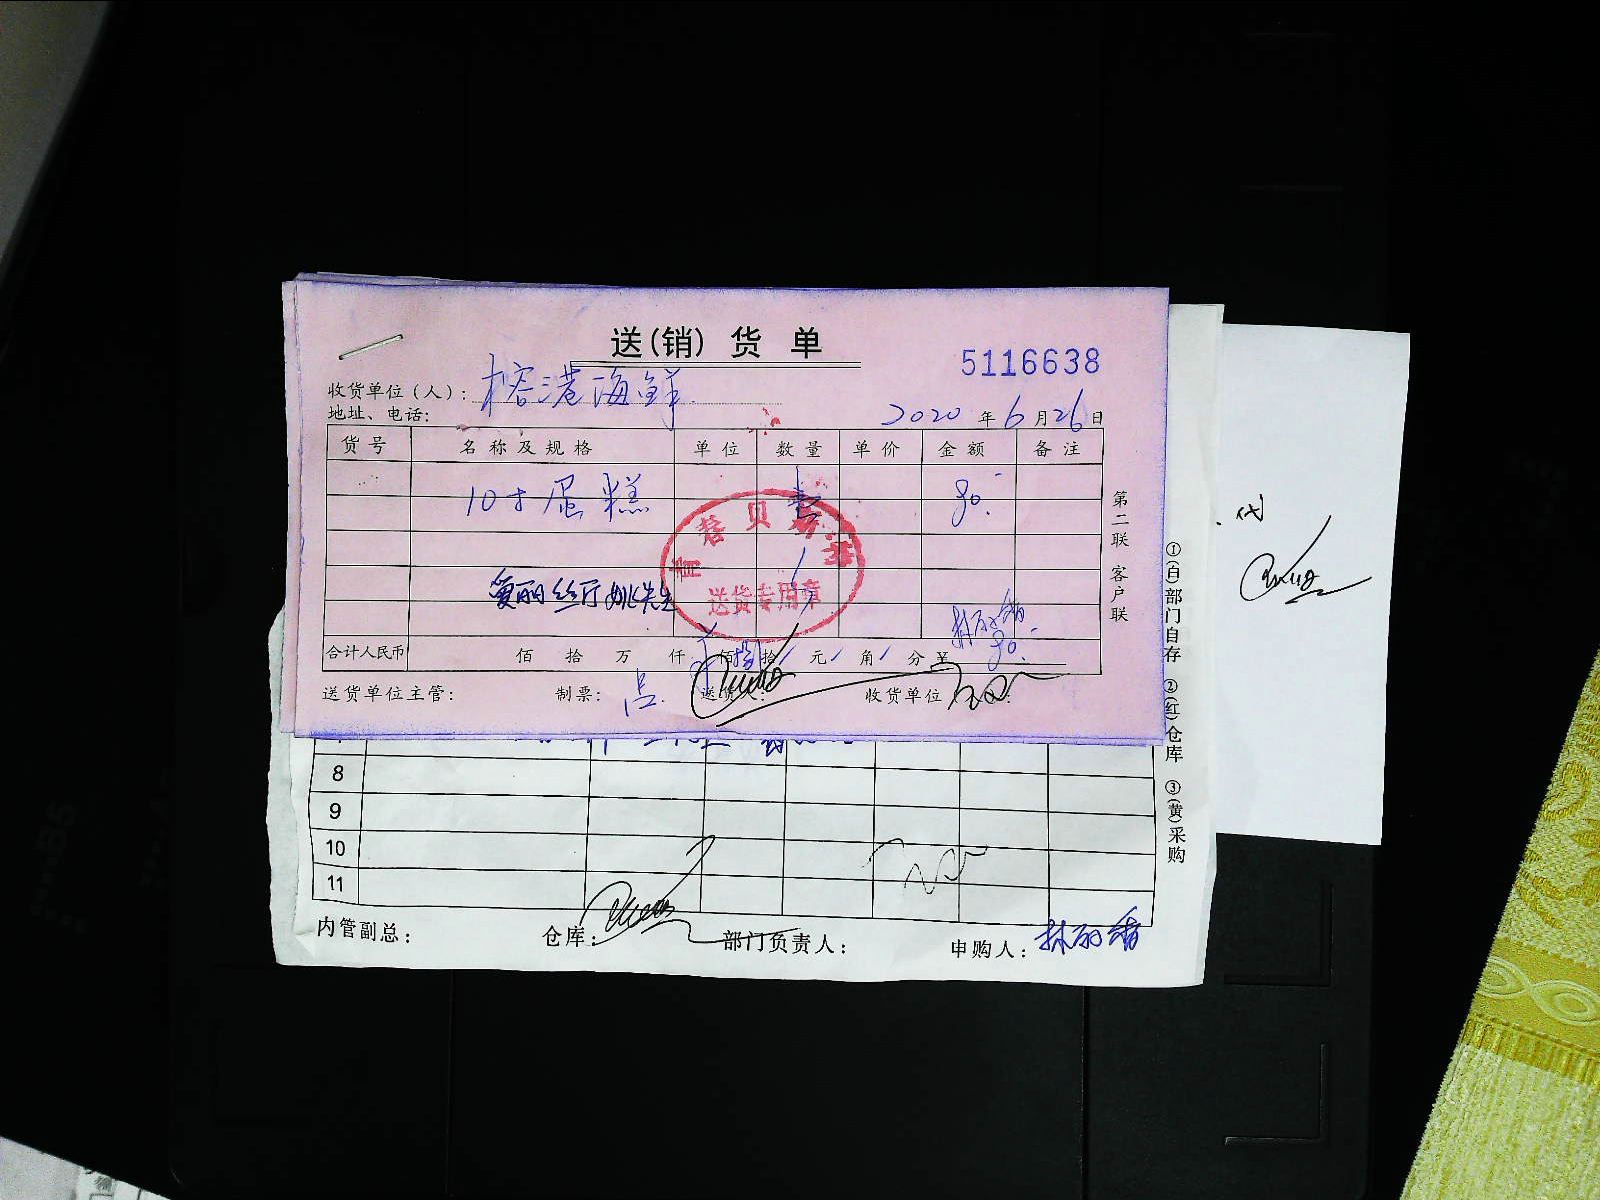 送(销)货单
5116638
收货单位(人): 榕港海鲜
地址、电话:
2020年6月26日
货号 名称及规格 单位 数量 单价 金额 备注
10寸蛋糕 80.-
送货专用章
爱丽丝厅姚先生
林丽
合计人民币 佰 拾 万 仟 佰 捌拾 元 角 分 ¥ 80.-
送货单位主管: 制票: 送货人: 收货单位
第二联 客户联
8
9
10
11
内管副总: 仓库: 部门负责人: 申购人: 林丽
①(白)部门自存 ②(红)仓库 ③(黄)采购
代